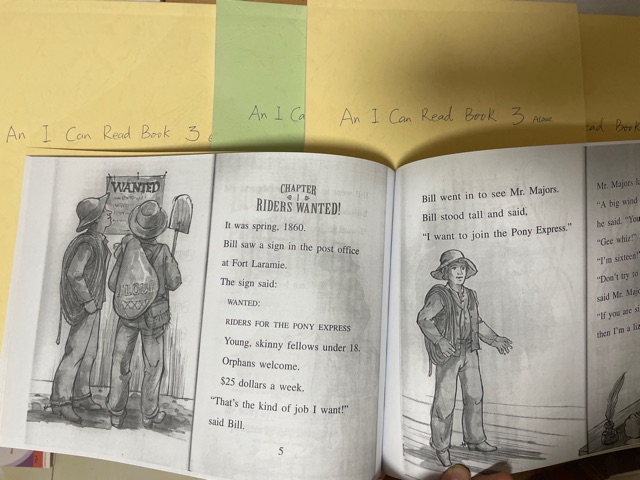 An I Can Read Book 3
An I Ca
An I Can Read Book 3 Alone
ead Book
WANTED
CHAPTER
1
RIDERS WANTED!
It was spring, 1860.
Bill saw a sign in the post office
at Fort Laramie.
The sign said:
WANTED:
RIDERS FOR THE PONY EXPRESS
Young, skinny fellows under 18.
Orphans welcome.
$25 dollars a week.
"That's the kind of job I want!"
said Bill.
5
Bill went in to see Mr. Majors.
Bill stood tall and said,
"I want to join the Pony Express."
Mr. Majors
"A big wind
he said. "You
"Gee whiz!"
"I'm sixteen!"
"Don't try to
said Mr. Majo
"If you are si
then I'm a